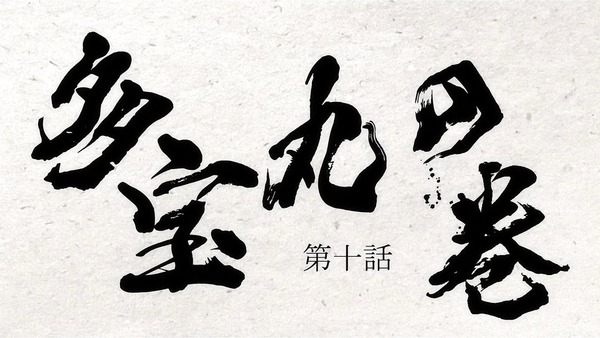 多宝丸の巻
第十話